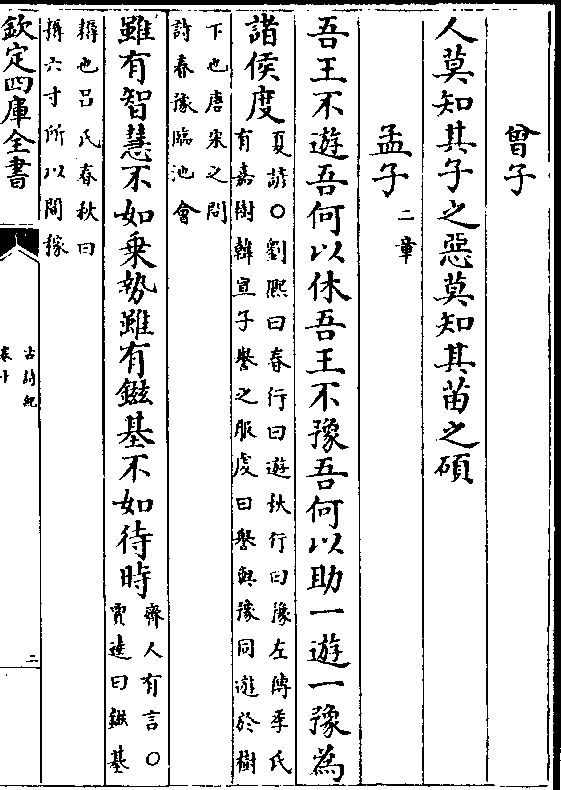 曾子
人莫知其子之惡莫知其苗之碩
孟子二章
吾王不遊吾何以休吾王不豫吾何以助一遊一豫為
諸侯度
夏諺○劉熙曰春行曰遊秋行曰豫左傳季氏
有嘉樹韓宣子譽之服虔曰譽與豫同遊於樹
下也唐宋之問
詩春豫臨池會
雖有智慧不如乗勢雖有鎡基不如待時
齊人有言○
賈逵曰鎡基
耨也吕氏春秋曰
耨六寸所以間稼
欽定四庫全書
古詩紀
卷十
二